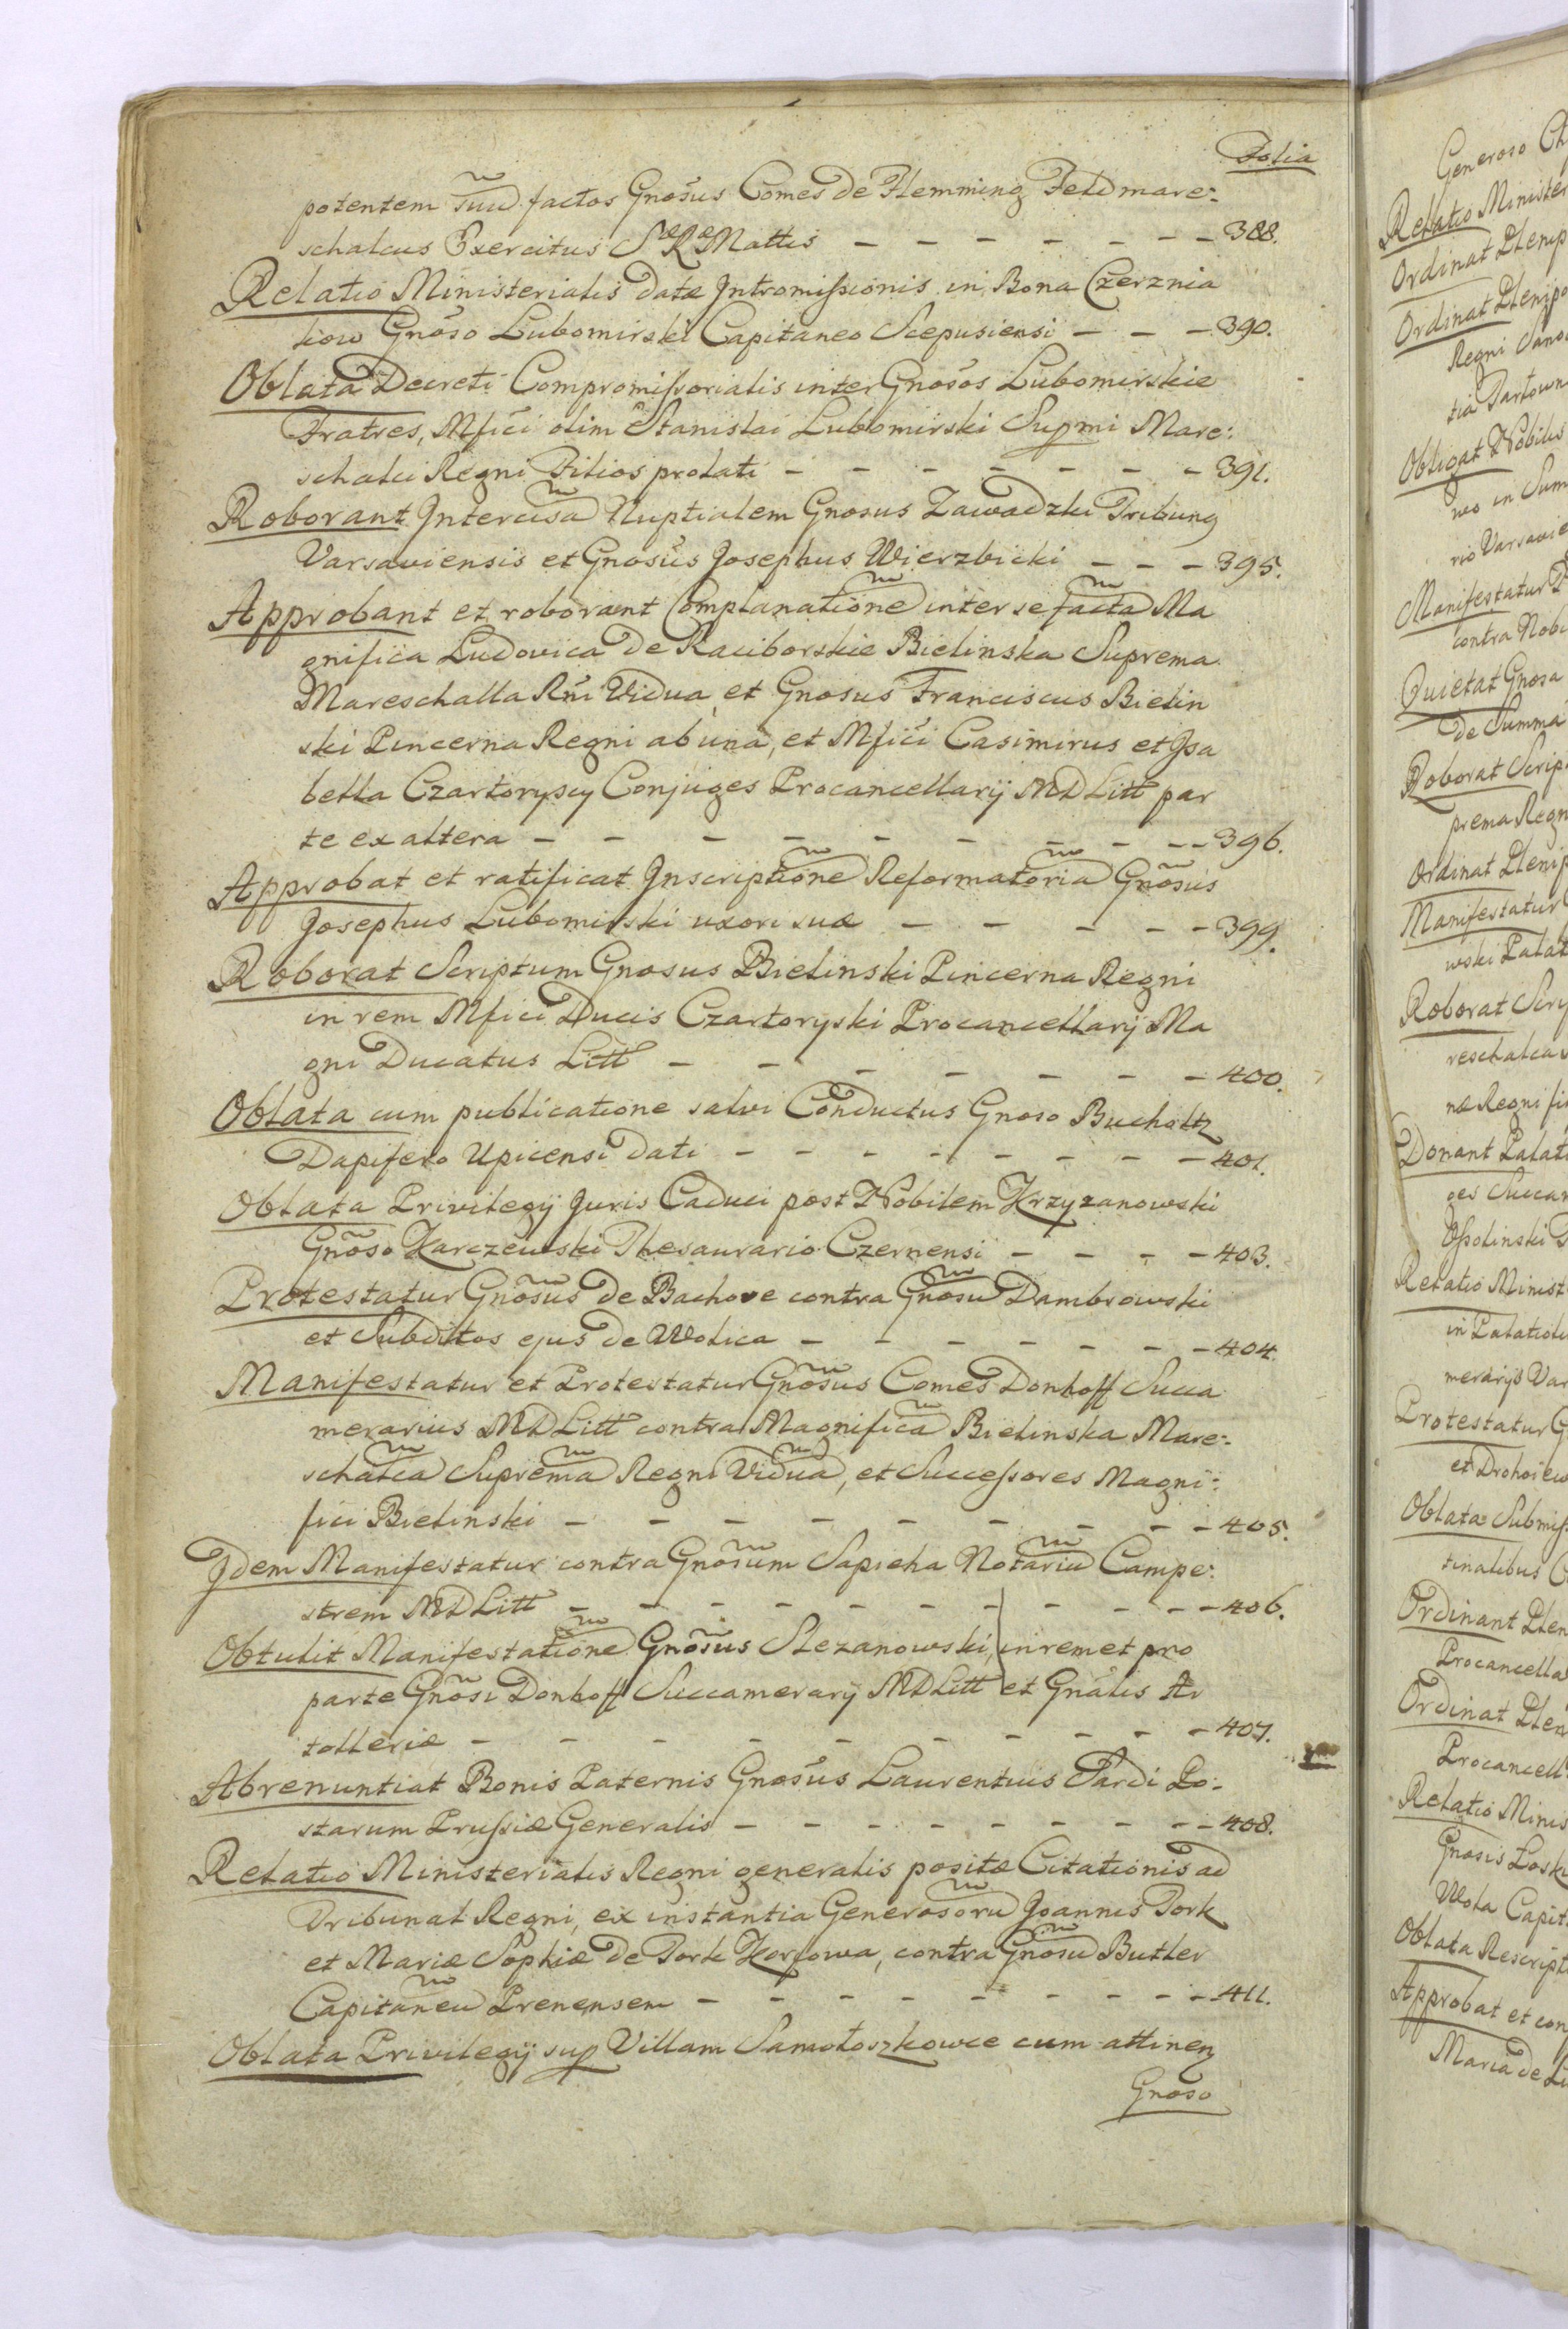 Folia
potentem suũ factos Gnosus Comes de Flemming Feldmare:
schalcus Exercitus Sæ Ræ Mattis – – – – – – – 388.
Relatio Ministerialis datæ Intromissionis in Bona Czerznia
kow Gnoso Lubomirski Capitaneo Scepusiensi – – – 390.
Oblata Decreti Compromissorialis inter Gnosos Lubomirskie
Fratres, Mfici olim Stanislai Lubomirski Supmi Mare:
schalci Regni Filios prolati – – – – – – – 391.
Roborant Intercisã Nuptialem Gnosus Zawadzki Tribung
Varsaviensis et Gnosus Josephus Wierzbicki – – – 395.
Approbant et roborant Complanationẽ inter se factã Ma
gnifica Ludovica de Raciborskie Bielinska Suprema
Mareschalla Rni Vidua, et Gnosus Franciscus Bielin
ski Pincerna Regni ab una, et Mfici Casimirus et Isa
bella Czartoryscy Conjuges Procancellarij MDLitt par
te ex altera – – – – – – – – – 396.
Approbat et ratificat Inscriptionẽ Reformatoriã Gnosus
Josephus Lubomirski uxori suæ – – – – – 399.
Roborat Scriptum Gnosus Bielinski Pincerna Regni
in rem Mfici Ducis Czartoryski Procancellarij Ma
gni Ducatus Litt – – – – – – – 400.
Oblata cum publicatione salvi Conductus Gnoso Bucholtz
Dapifero Upicensi dati – – – – – – – – 401.
Oblata Privilegij Juris Caduci post Nobilem Krzyzanowski
Gnoso Karczewski Thesaurario Czernensi – – – – 403.
Protestatur Gnosus de Bachove contra Gnosũ Dambrowski
et Subditos ejus de Wolica – – – – – – – 404.
Manifestatur et Protestatur Gnosus Comes Donhoff Succa
merarius MDLitt contra Magnificã Bielinska Mare:
schalcã Supremã Regni Viduã, et Successores Magni:
fici Bielinski – – – – – – – – – 405.
Idem Manifestatur contra Gnosum Sapieha Notariũ Campe:
strem MDLitt – – – – – – – – – – 406.
Obtulit Manifestationẽ Gnosus Slezanowski, in rem et pro
parte Gnosi Donhoff Succamerarij MDLitt et Gnalis Ar
tolleriæ – – – – – – – – – 407.
Abrenuntiat Bonis Paternis Gnosus Laurentius Pardi Po:
starum Prussiæ Generalis – – – – – – – – 408.
Relatio Ministerialis Regni generalis positæ Citationis ad
Tribunal Regni, ex instantia Generosorũ Joannis Tork
et Mariæ Sophiæ de Tork Korfowa, contra Gnosũ Butler
Capitaneũ Prenensem – – – – – – – – 411.
Oblata Privilegij sup Villam Samotoszkowce cum attinen
Gnoso
Generoso
Relatio Minister
Ordinat Plenip
Ordinat Plenipo
Regni
Obligat Nobilis
wo in Sum
rio Varsavie
Manifestatur
contra Nobi
Quietat Gnosa
de Summa
Roborat Scrip
prema Regn
Ordinat Plenip
Manifestatur
wski Palat
Roborat Scrip
reschalca
næ Regni fi
Donant Palati
ges Succa
Ossolinski
Relatio Minist
in Palatiolo
merarijs Var
Protestatur G
et Drohoiew
Oblata Submiss
tinalibus
Ordinant Plen
Procancella
Ordinat Plen
Procancell
Relatio Minis
Gnosis Loski
Wola Capit
Oblata Rescript
Approbat et con
Maria de Lu